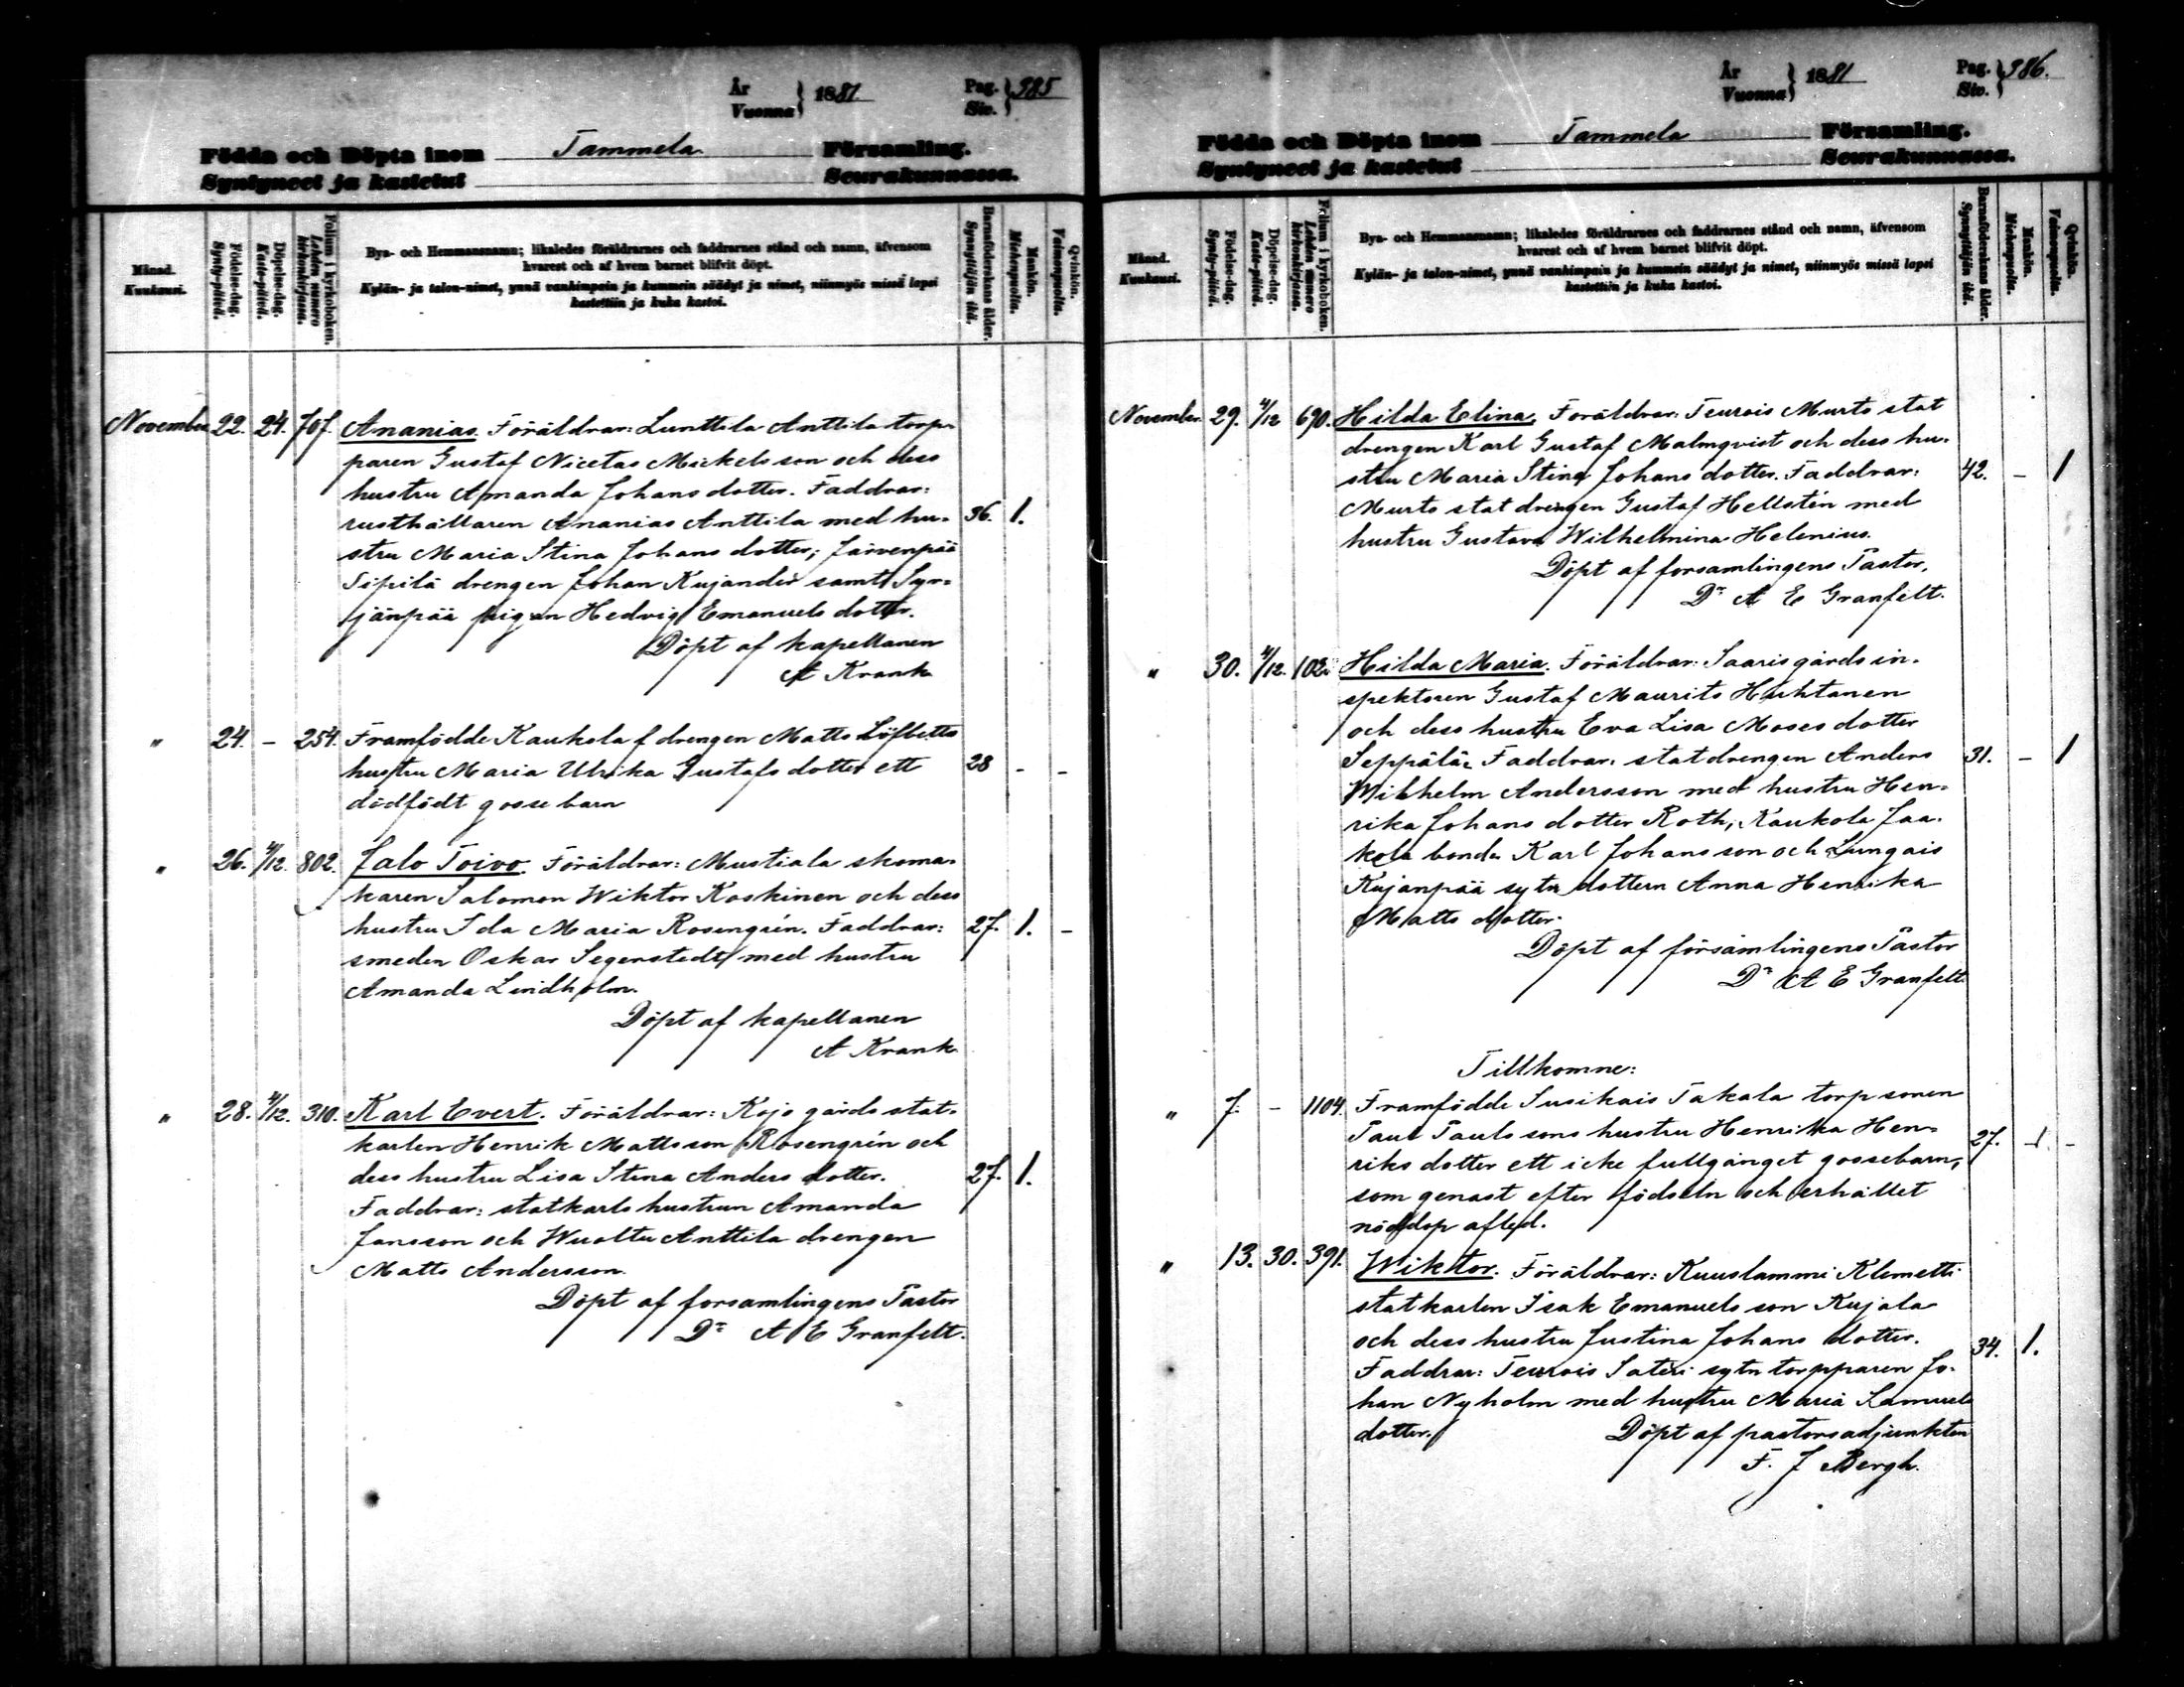 År
Vuonna } 1881.
Pag.
Siv. } 985
Födda och Döpta inom Tammela Församling.
Syntyneet ja kastetut Seurakunnassa.
Månad.
Kuukausi.
Födelse-dag.
Synty-päivä.
Döpelse-dag.
Kaste-päivä.
Folium i kyrkoboken.
Lehden numero kirkonkirjassa.
Bya- och Hemmansnamn; likaledes föräldrarnes och faddrarnes stånd och namn, äfvensom
hvarest och af hvem barnet blifvit döpt.
Kylän- ja talon-nimet, ynnä vanhimpain ja kummein säädyt ja nimet, niinmyös missä lapsi
kastettiin ja kuka kastoi.
Barnaföderskans ålder.
Synnyttäjän ikä.
Mankön.
Miehenpuolia.
Qvinkön.
Vaimonpuolia.
November 22. 24. 707. Ananias. Föräldrar: Lunttila Anttila torp-
paren Gustaf Nicetas Mickelsson och dess
hustru Amanda Johans dotter. Faddrar:
rusthållaren Ananias Anttila med hu- 36. 1.
stru Maria Stina Johans dotter; Järvenpää
Sipilä drengen Johan Kujander samt Syr-
jänpää pigan Hedvig Emanuels dotter.
Döpt af kapellanen
A Krank
" 24. - 254. Framfödde Kaukola f drengen Matts Löfbetts
hustru Maria Ulrika Gustafs dotter ett 28 - -
dödfödt gosse barn
" 26. 4/12. 802. Jalo Toivo. Föräldrar: Mustiala skoma-
karen Salomon Wiktor Koskinen och dess
hustru Ida Maria Rosengrén. Faddrar: 27. 1. -
smeden Oskar Segerstedt med hustru
Amanda Lindholm.
Döpt af kapellanen
A Krank
" 28. 4/12. 310. Karl Evert. Föräldrar: Kojo gårds stat-
karlen Henrik Mattsson Rosengrén och
dess hustru Lisa Stina Anders dotter. 27. 1.
Faddrar: statkarls hustrun Amanda
Jansson och Wuoltu Anttila drengen
Matts Andersson.
Döpt af forsamlingens Pastor
Dr A E Granfelt.
År
Vuonna } 1881
Pag.
Siv. } 986.
Födda och Döpta inom Tammela Församling.
Syntyneet ja kastetut Seurakunnassa.
Månad.
Kuukausi.
Födelse-dag.
Synty-päivä.
Döpelse-dag.
Kaste-päivä.
Folium i kyrkoboken.
Lehden numero kirkonkirjassa.
Bya- och Hemmansnamn; likaledes föräldrarnes och faddrarnes stånd och namn, äfvensom
hvarest och af hvem barnet blifvit döpt.
Kylän- ja talon-nimet, ynnä vanhimpain ja kummein säädyt ja nimet, niinmyös missä lapsi
kastettiin ja kuka kastoi.
Barnaföderskans ålder.
Synnyttäjän ikä.
Mankön.
Miehenpuolia.
Qvinkön.
Vaimonpuolia.
November. 29. 4/12 690. Hilda Elina. Föräldrar: Teurois Murto stat
drengen Karl Gustaf Malmqvist och dess hu-
stru Maria Stina Johans dotter. Faddrar: 42. - 1
Murto stat drengen Gustaf Hellstén med
hustru Gustava Wilhelmina Helenius.
Döpt af forsamlingens Pastor,
Dr A E Granfelt.
" 30. 4/12. 102. Hilda Maria. Föräldrar: Saaris gårds in-
spektoren Gustaf Maurits Huhtanen
och dess hustru Eva Lisa Moses dotter
Seppälä. Faddrar: statdrengen Anders 31. - 1
Wilhelm Andersson med hustru Hen-
rika Johans dotter Roth; Kaukola Jaa-
kola bonden Karl Johansson och Lungais
Kujanpää sytn dottern Anna Henrika
Matts dotter.
Döpt af församlingens Pastor
Dr A E Granfelt.
Tillkomne:
" 7. - 1104. Framfödde Susikais Takala torp sonen
Paul Pauls sons hustru Henrika Hen- 27. 1. -
riks dotter ett icke fullgånget gossebarn,
som genast efter födseln och erhållet
nöddop afled.
" 13. 30. 391. Wiktor. Föräldrar: Kuuslammi Klemetti
statkarlen Isak Emanuels son Kujala
och dess hustru Justina Johans dotter. 34. 1.
Faddrar: Teurois Sateri sytn torpparen Jo-
han Nyholm med hustru Maria Samuels
dotter. Döpt af pastorsadjunkten
F. J Bergh.